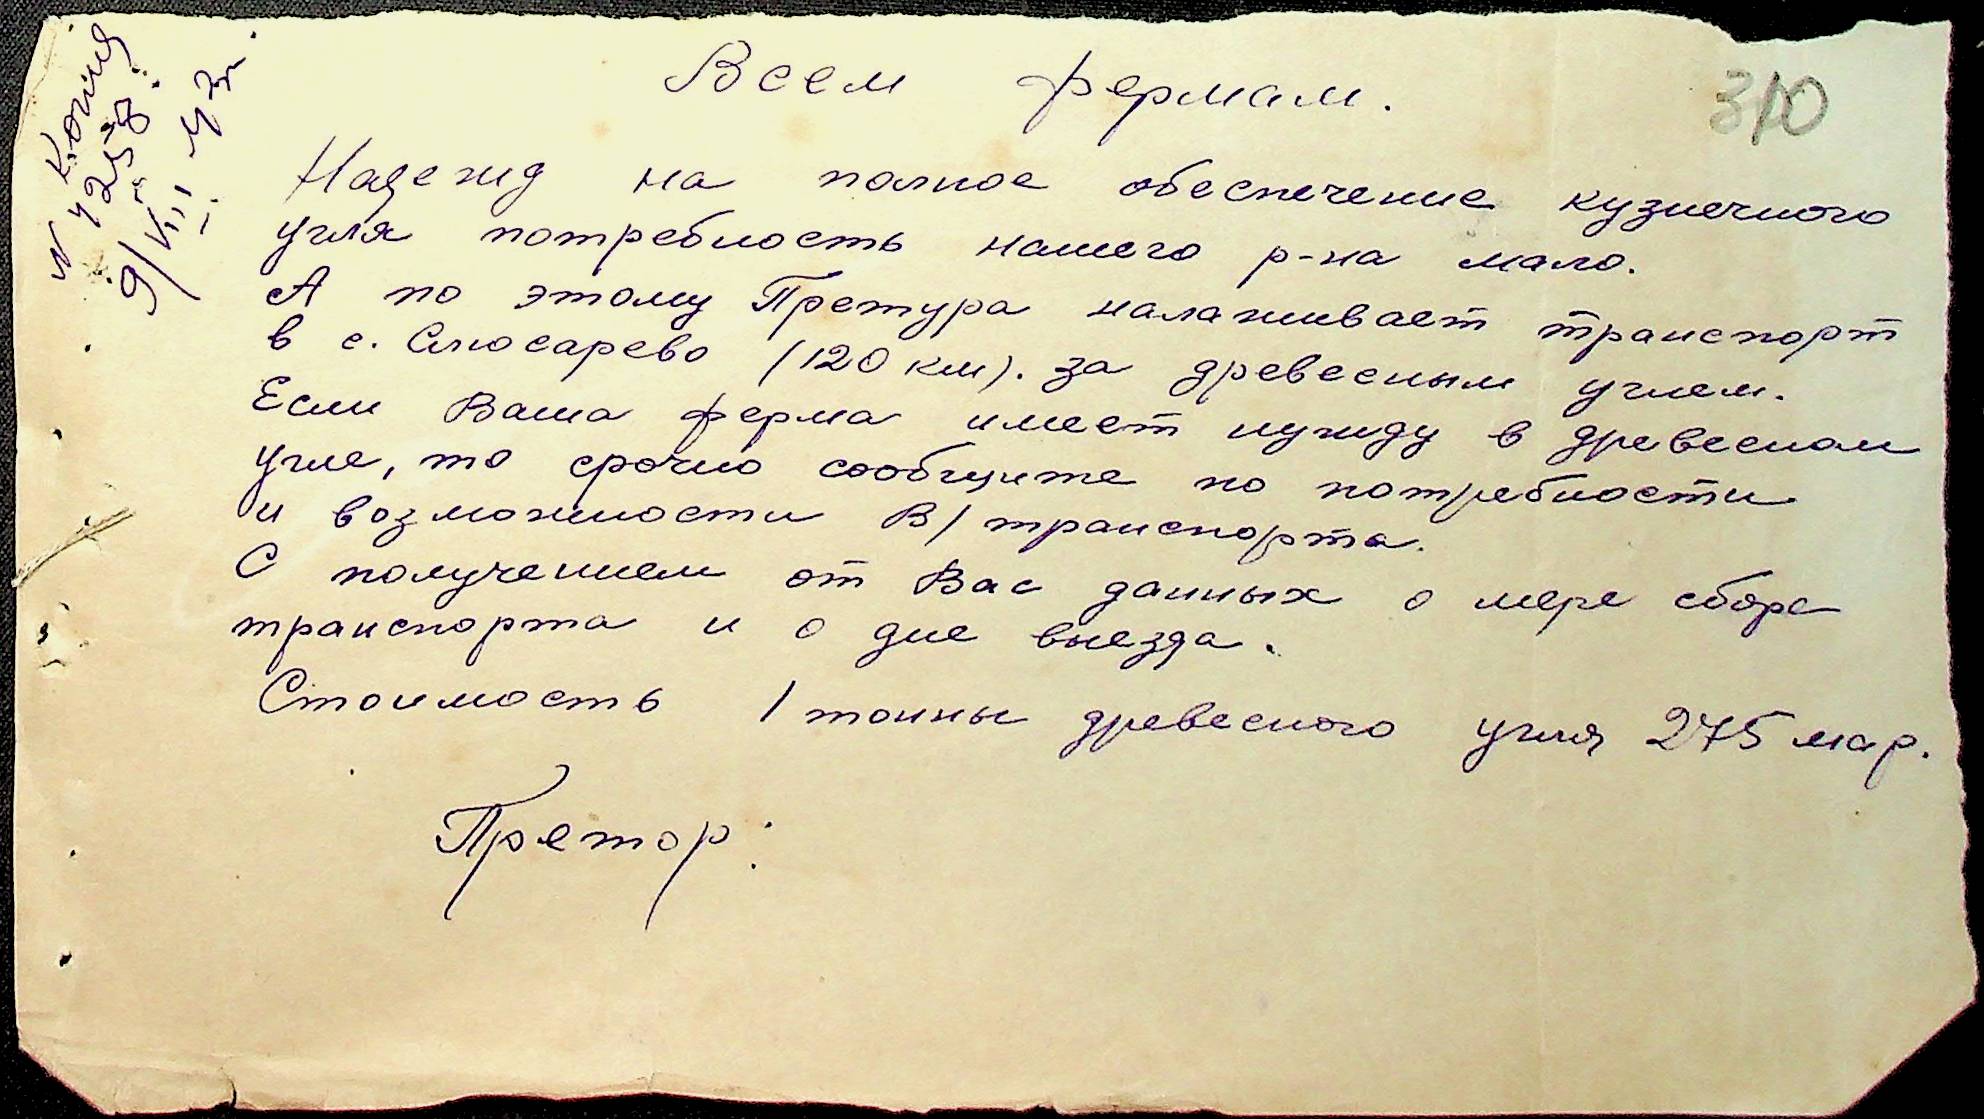 Копия
N 4258
9/VIII 43 г.
310
Всем фермам.
Надежд на полное обеспечение кузнечного
угля потребность нашего р-на мало.
А по этому Претура налаживает транспорт
в с. Слюсарево (120 км). за древесным углем.
Если Ваша ферма имеет нужду в древесном
угле, то срочно сообщите по потребности
и возможности В/транспорта.
С получением от Вас данных о мере сборе
транспорта и о дне выезда.
Стоимость 1 тонны древесного угля 275 мар.
Претор: